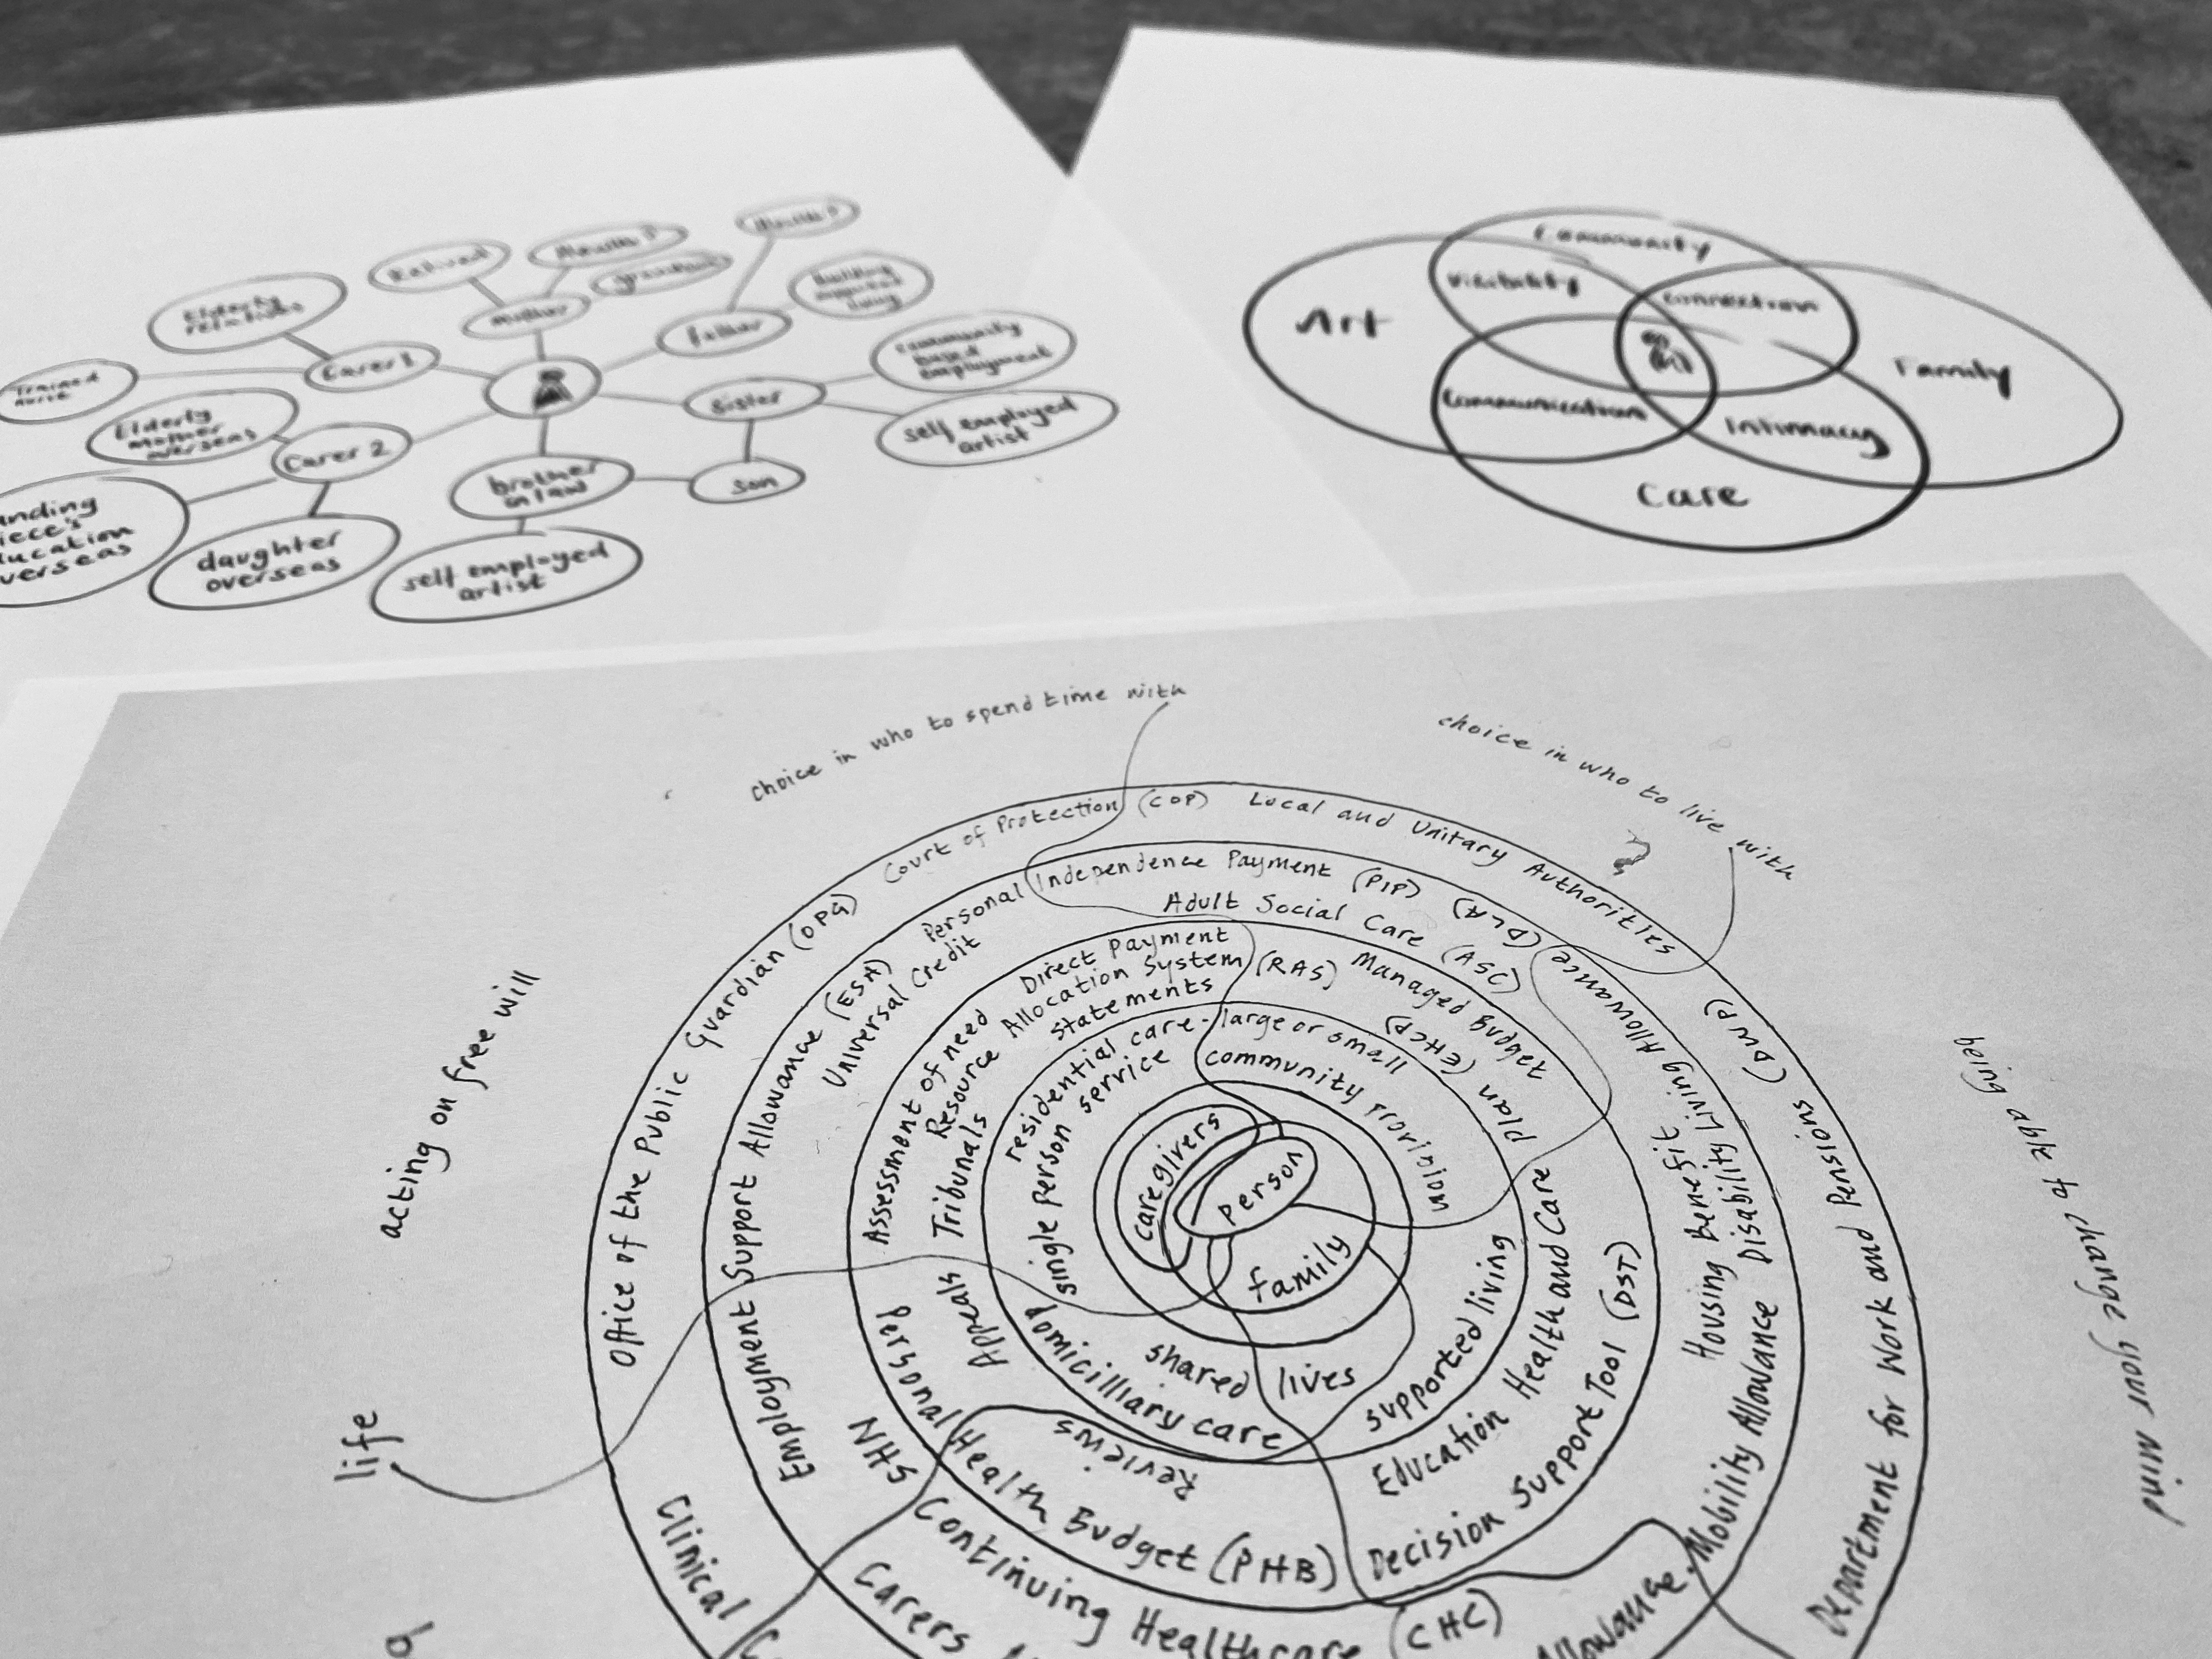 Elderly
relations
Retired
mother
father
Carer 1
Trained
nurse
Elderly
mother
overseas
Carer 2
sister
community
based
employment
self employed
artist
brother
in law
son
daughter
overseas
self employed
artist
Community
visibility
connection
Art
Family
communication
Intimacy
Care
choice in who to spend time with
choice in who to live with
?
acting on free will
life
being able to change your mind
Office of the Public Guardian (OPG)
Court of Protection (COP)
Local and Unitary Authorities
Department for Work and Pensions (DWP)
Clinical
Employment Support Allowance (ESA)
Universal Credit
Personal Independence Payment (PIP)
Adult Social Care (ASC)
Disability Living Allowance (DLA)
Housing Benefit
Mobility Allowance
Allowance
Carers
NHS Continuing Healthcare (CHC)
Assessment of need
Direct payment
Resource Allocation System (RAS)
Statements
Managed Budget
Tribunals
Appeals
Reviews
Personal Health Budget (PHB)
Decision Support Tool (DST)
Education Health and Care plan (EHCP)
residential care - large or small
single person service
community provision
domicilliary care
supported living
shared lives
caregivers
person
family